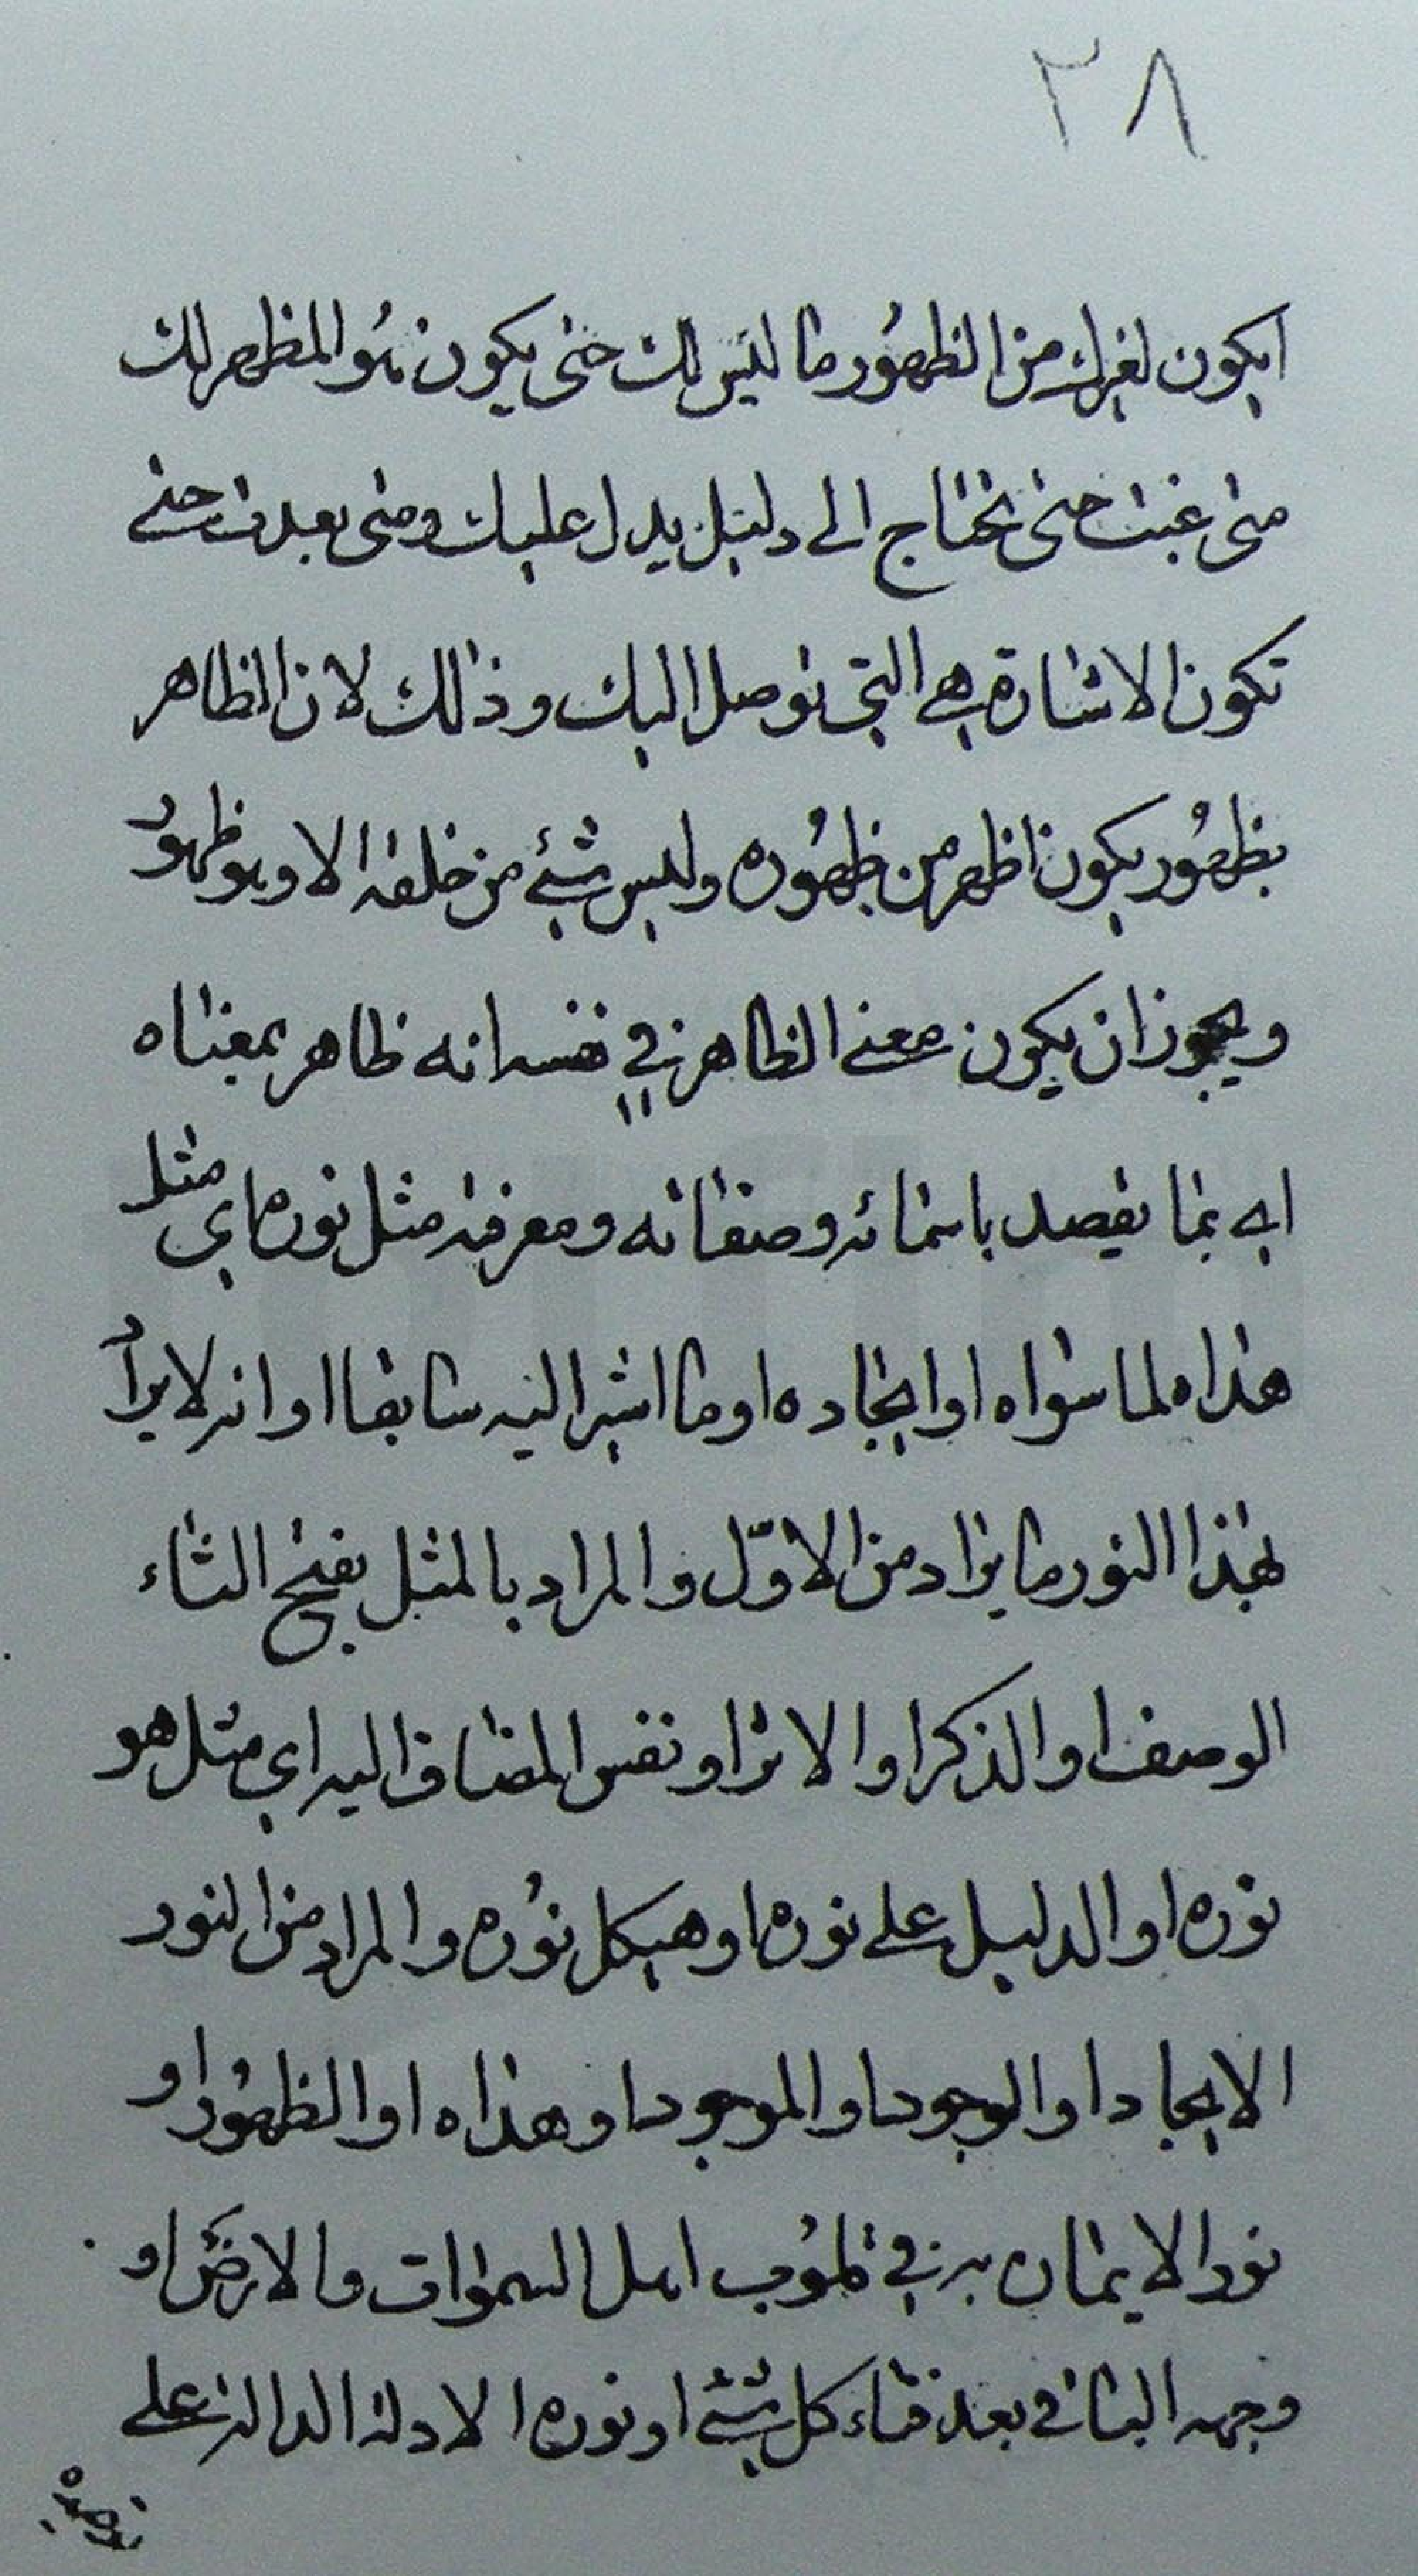 ٣٨
ايكون لغيرك من الظهور ما ليس لك حتى يكون هو المظهر لك
متى غبت حتى تحتاج الى دليل يدل عليك ومتى بعدت حتى
تكون الاشارة هي التي توصل اليك وذلك لان الظاهر
بظهور يكون اظهر من ظهوره وليس شئ من خلقه الا وهو ظهور
ويجوز ان يكون معنى الظاهر في نفسه انه ظاهر بمعناه
اي بما يقصد باسمائه وصفاته ومعرفته مثل نوره اي مثل
هداه لما سواه او ايجاده او ما اشير اليه سابقا او انه لا يراد
بهذا النور ما يراد من الاوّل والمراد بالمثل بفتح الثاء
الوصف او الذكر او الاثر او نفس المضاف اليه اي مثل هو
نوره او الدليل على نوره او هيكل نوره والمراد من النور
الايجاد او الوجود او الموجود او هداه او الظهور او
نور الايمان به في قلوب اهل السموات والارض او
وجهه الباقي بعد فناء كل شئ او نوره الادلة الدالة على